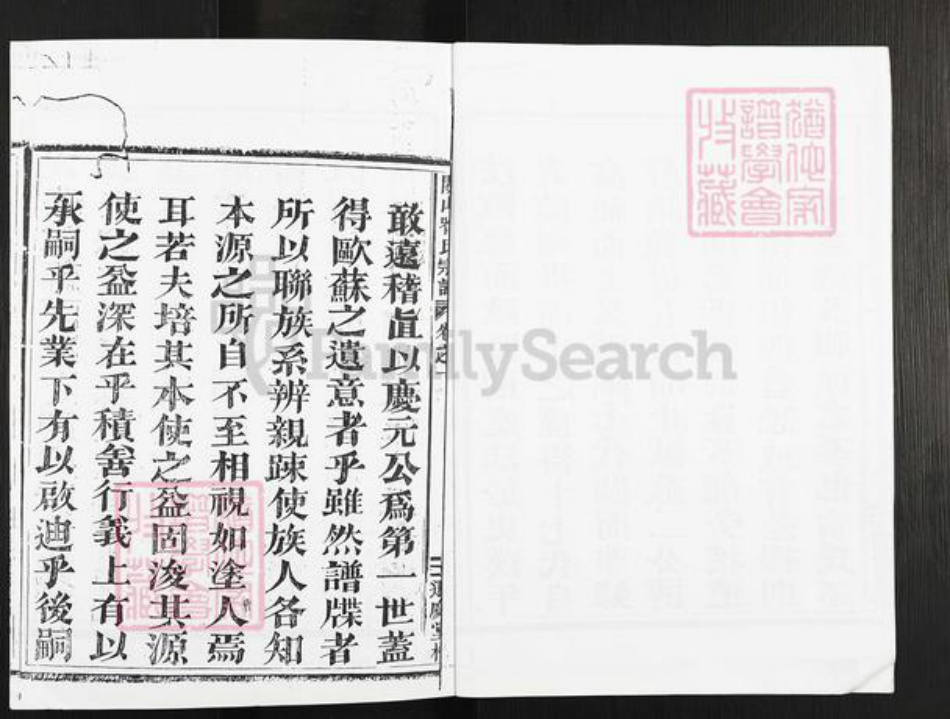 敢遠稽眞以慶元公爲第一世蓋
得歐蘇之遺意者乎雖然譜牒者
所以聯族系辨親踈使族人各知
本源之所自不至相視如塗人焉
耳若夫培其本使之益固浚其源
使之益深在乎積善行義上有以
承嗣乎先業下有以啟迪乎後嗣
FamilySearch